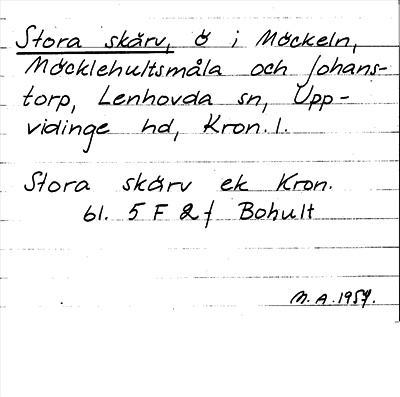 Stora skärv, ö i Möckeln,
Möcklehultsmåla och Johans-
torp, Lenhovda sn, Upp-
vidinge hd, Kron. l.
Stora skärv ek Kron.
bl. 5 F 2 f Bohult
M. A. 1954.